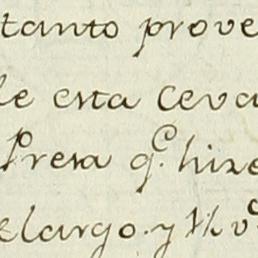 tanto prove
le esta ceva
Presa q.^e hize
elargo. y 1½ v^s